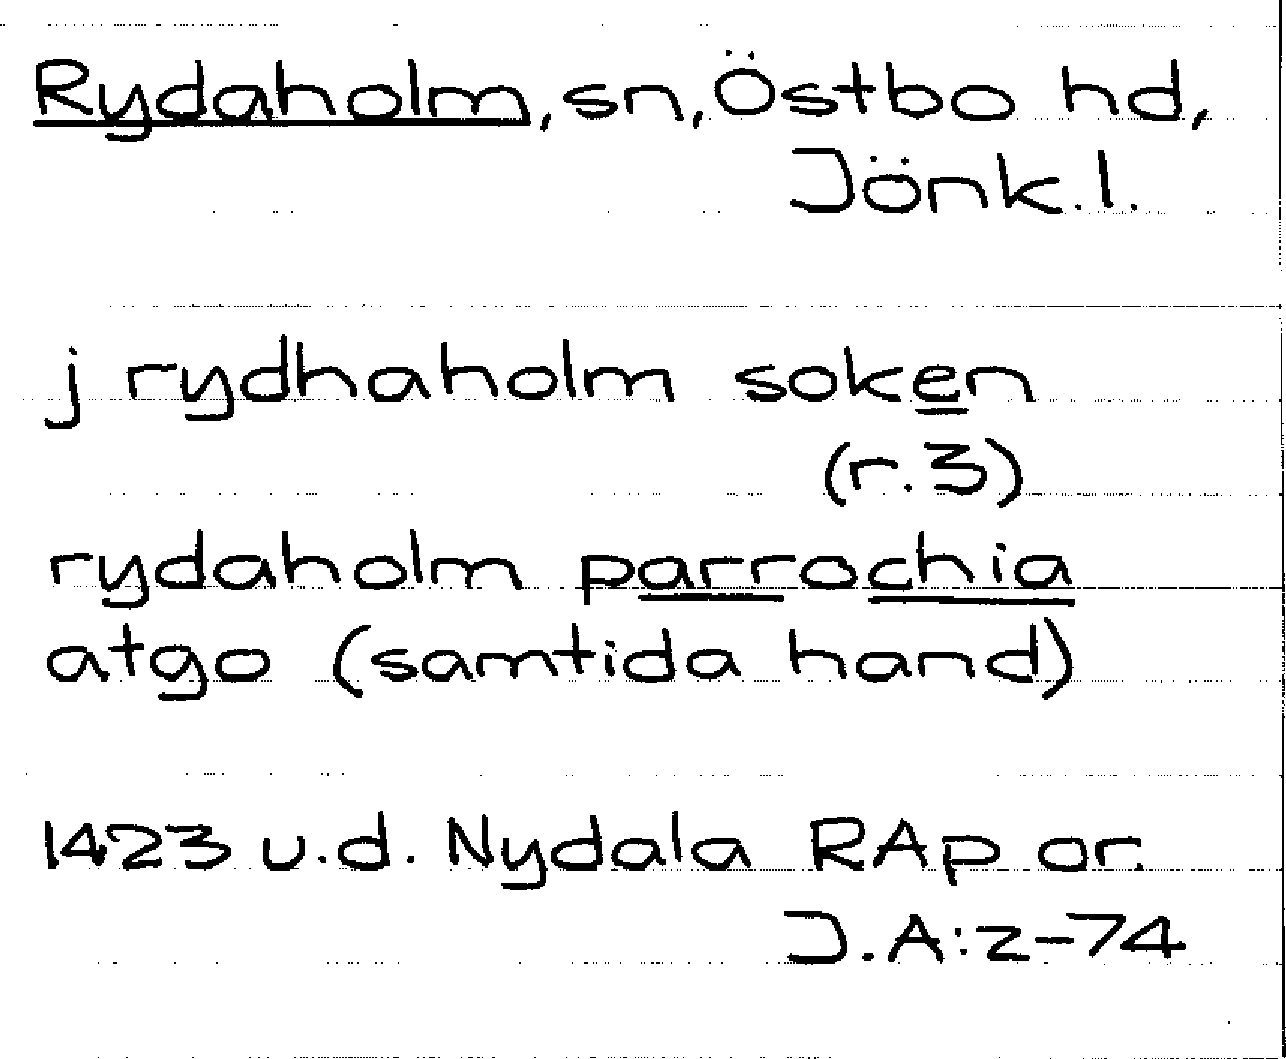 Rydaholm, sn, Östbo hd,
Jönk. l.
j rydhaholm soken
(r. 3)
rydaholm parrochia
atgo (samtida hand)
1423 u.d. Nydala RAp or.
J.A:z-74